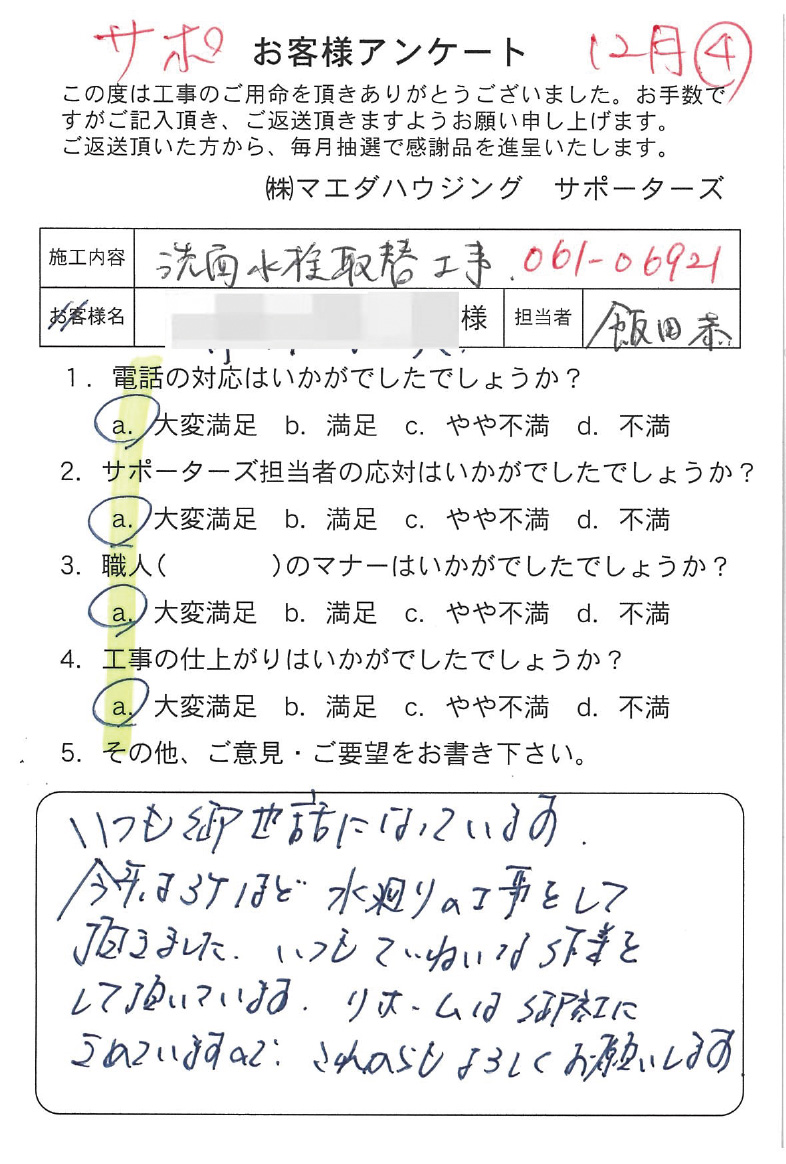 サポ お客様アンケート 12月④
この度は工事のご用命を頂きありがとうございました。お手数で
すがご記入頂き、ご返送頂きますようお願い申し上げます。
ご返送頂いた方から、毎月抽選で感謝品を進呈いたします。
㈱マエダハウジング サポーターズ
施工内容 洗面水栓取替工事. 061-06921
お客様名 様 担当者 飯田恭
1. 電話の対応はいかがでしたでしょうか？
a. 大変満足 b. 満足 c. やや不満 d. 不満
2. サポーターズ担当者の応対はいかがでしたでしょうか？
a. 大変満足 b. 満足 c. やや不満 d. 不満
3. 職人( )のマナーはいかがでしたでしょうか？
a. 大変満足 b. 満足 c. やや不満 d. 不満
4. 工事の仕上がりはいかがでしたでしょうか？
a. 大変満足 b. 満足 c. やや不満 d. 不満
5. その他、ご意見・ご要望をお書き下さい。
いつも御世話になっています.
今年は3ケほど水廻りの工事をして
頂きました. いつもていねいな作業を
して頂いています. リホームは御社に
きめていますので. これからもよろしくお願いします